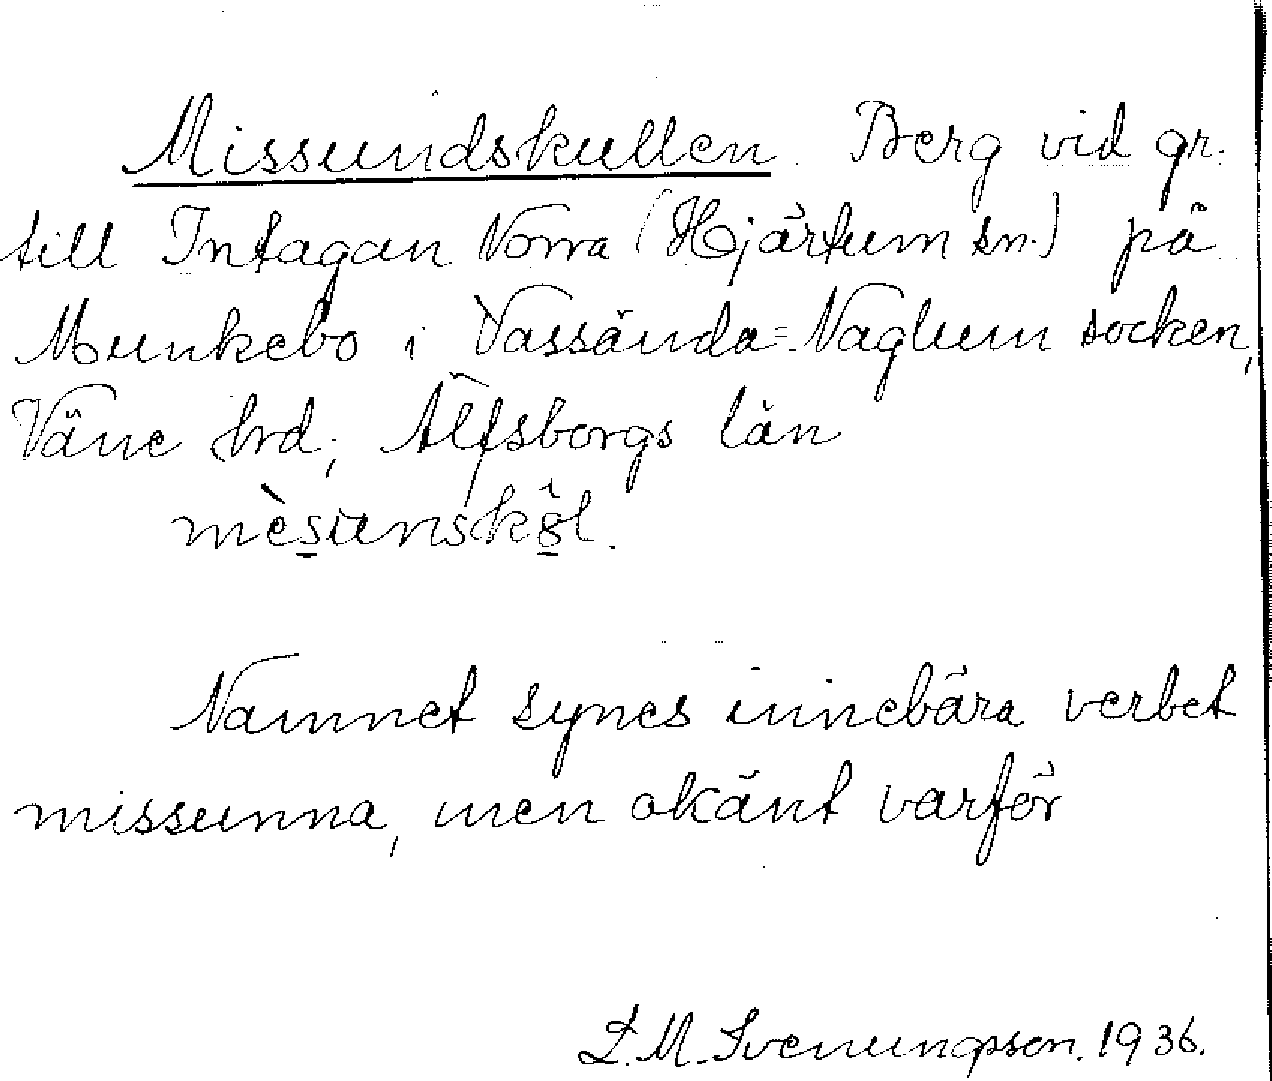 Missundskullen. Berg vid gr.
till Intagan Norra (Hjärtum sn.) på
Munkebo i Vassända=Naglum socken,
Väne hrd, Älfsborgs län
mèsunskôl.
Namnet synes innebära verbet
missunna, men okänt varför
L. M. Svenungsson. 1936.